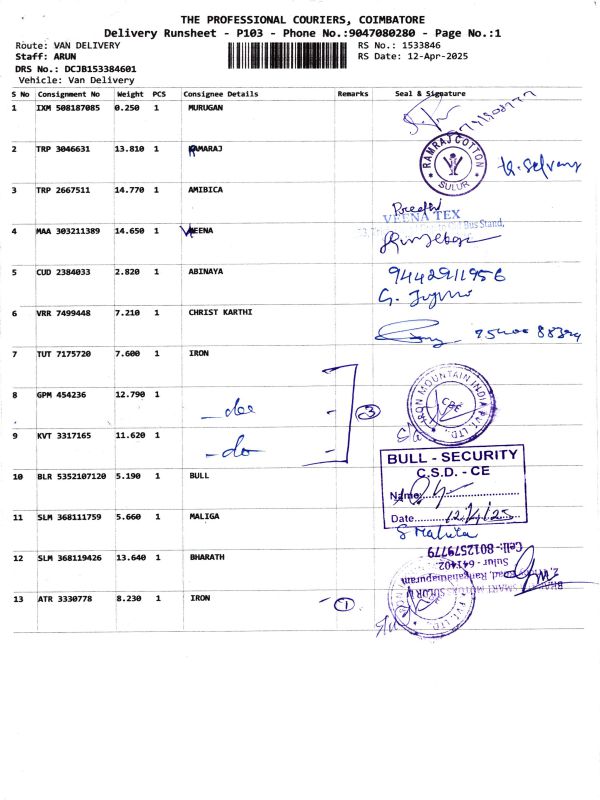 THE PROFESSIONAL COURIERS, COIMBATORE
Delivery Runsheet - P103 - Phone No.:9047080280 - Page No.:1
Route: VAN DELIVERY
Staff: ARUN
DRS No.: DCJB153384601
Vehicle: Van Delivery
RS No.: 1533846
RS Date: 12-Apr-2025
S No Consignment No Weight PCS Consignee Details Remarks Seal & Signature
1 IXM 508187085 0.250 1 MURUGAN
2 TRP 3046631 13.810 1 RAMARAJ
RAMRAJ COTTON
SULUR
3 TRP 2667511 14.770 1 AMIBICA
VEENA TEX
Bus Stand,
4 MAA 303211389 14.650 1 VEENA
5 CUD 2384033 2.820 1 ABINAYA
9442911956
6 VRR 7499448 7.210 1 CHRIST KARTHI
7 TUT 7175720 7.600 1 IRON
IRON MOUNTAIN INDIA PVT. LTD.
CBE
8 GPM 454236 12.790 1 - do - 3
9 KVT 3317165 11.620 1 - do -
BULL - SECURITY
C.S.D. - CE
Name
Date 12/4/25
10 BLR 5352107120 5.190 1 BULL
11 SLM 368111759 5.660 1 MALIGA
S Maliga
12 SLM 368119426 13.640 1 BHARATH
Cell:-8012579779
Sulur - 641402
Road, Ranganathapuram
13 ATR 3330778 8.230 1 IRON - 1
PVT. LTD.